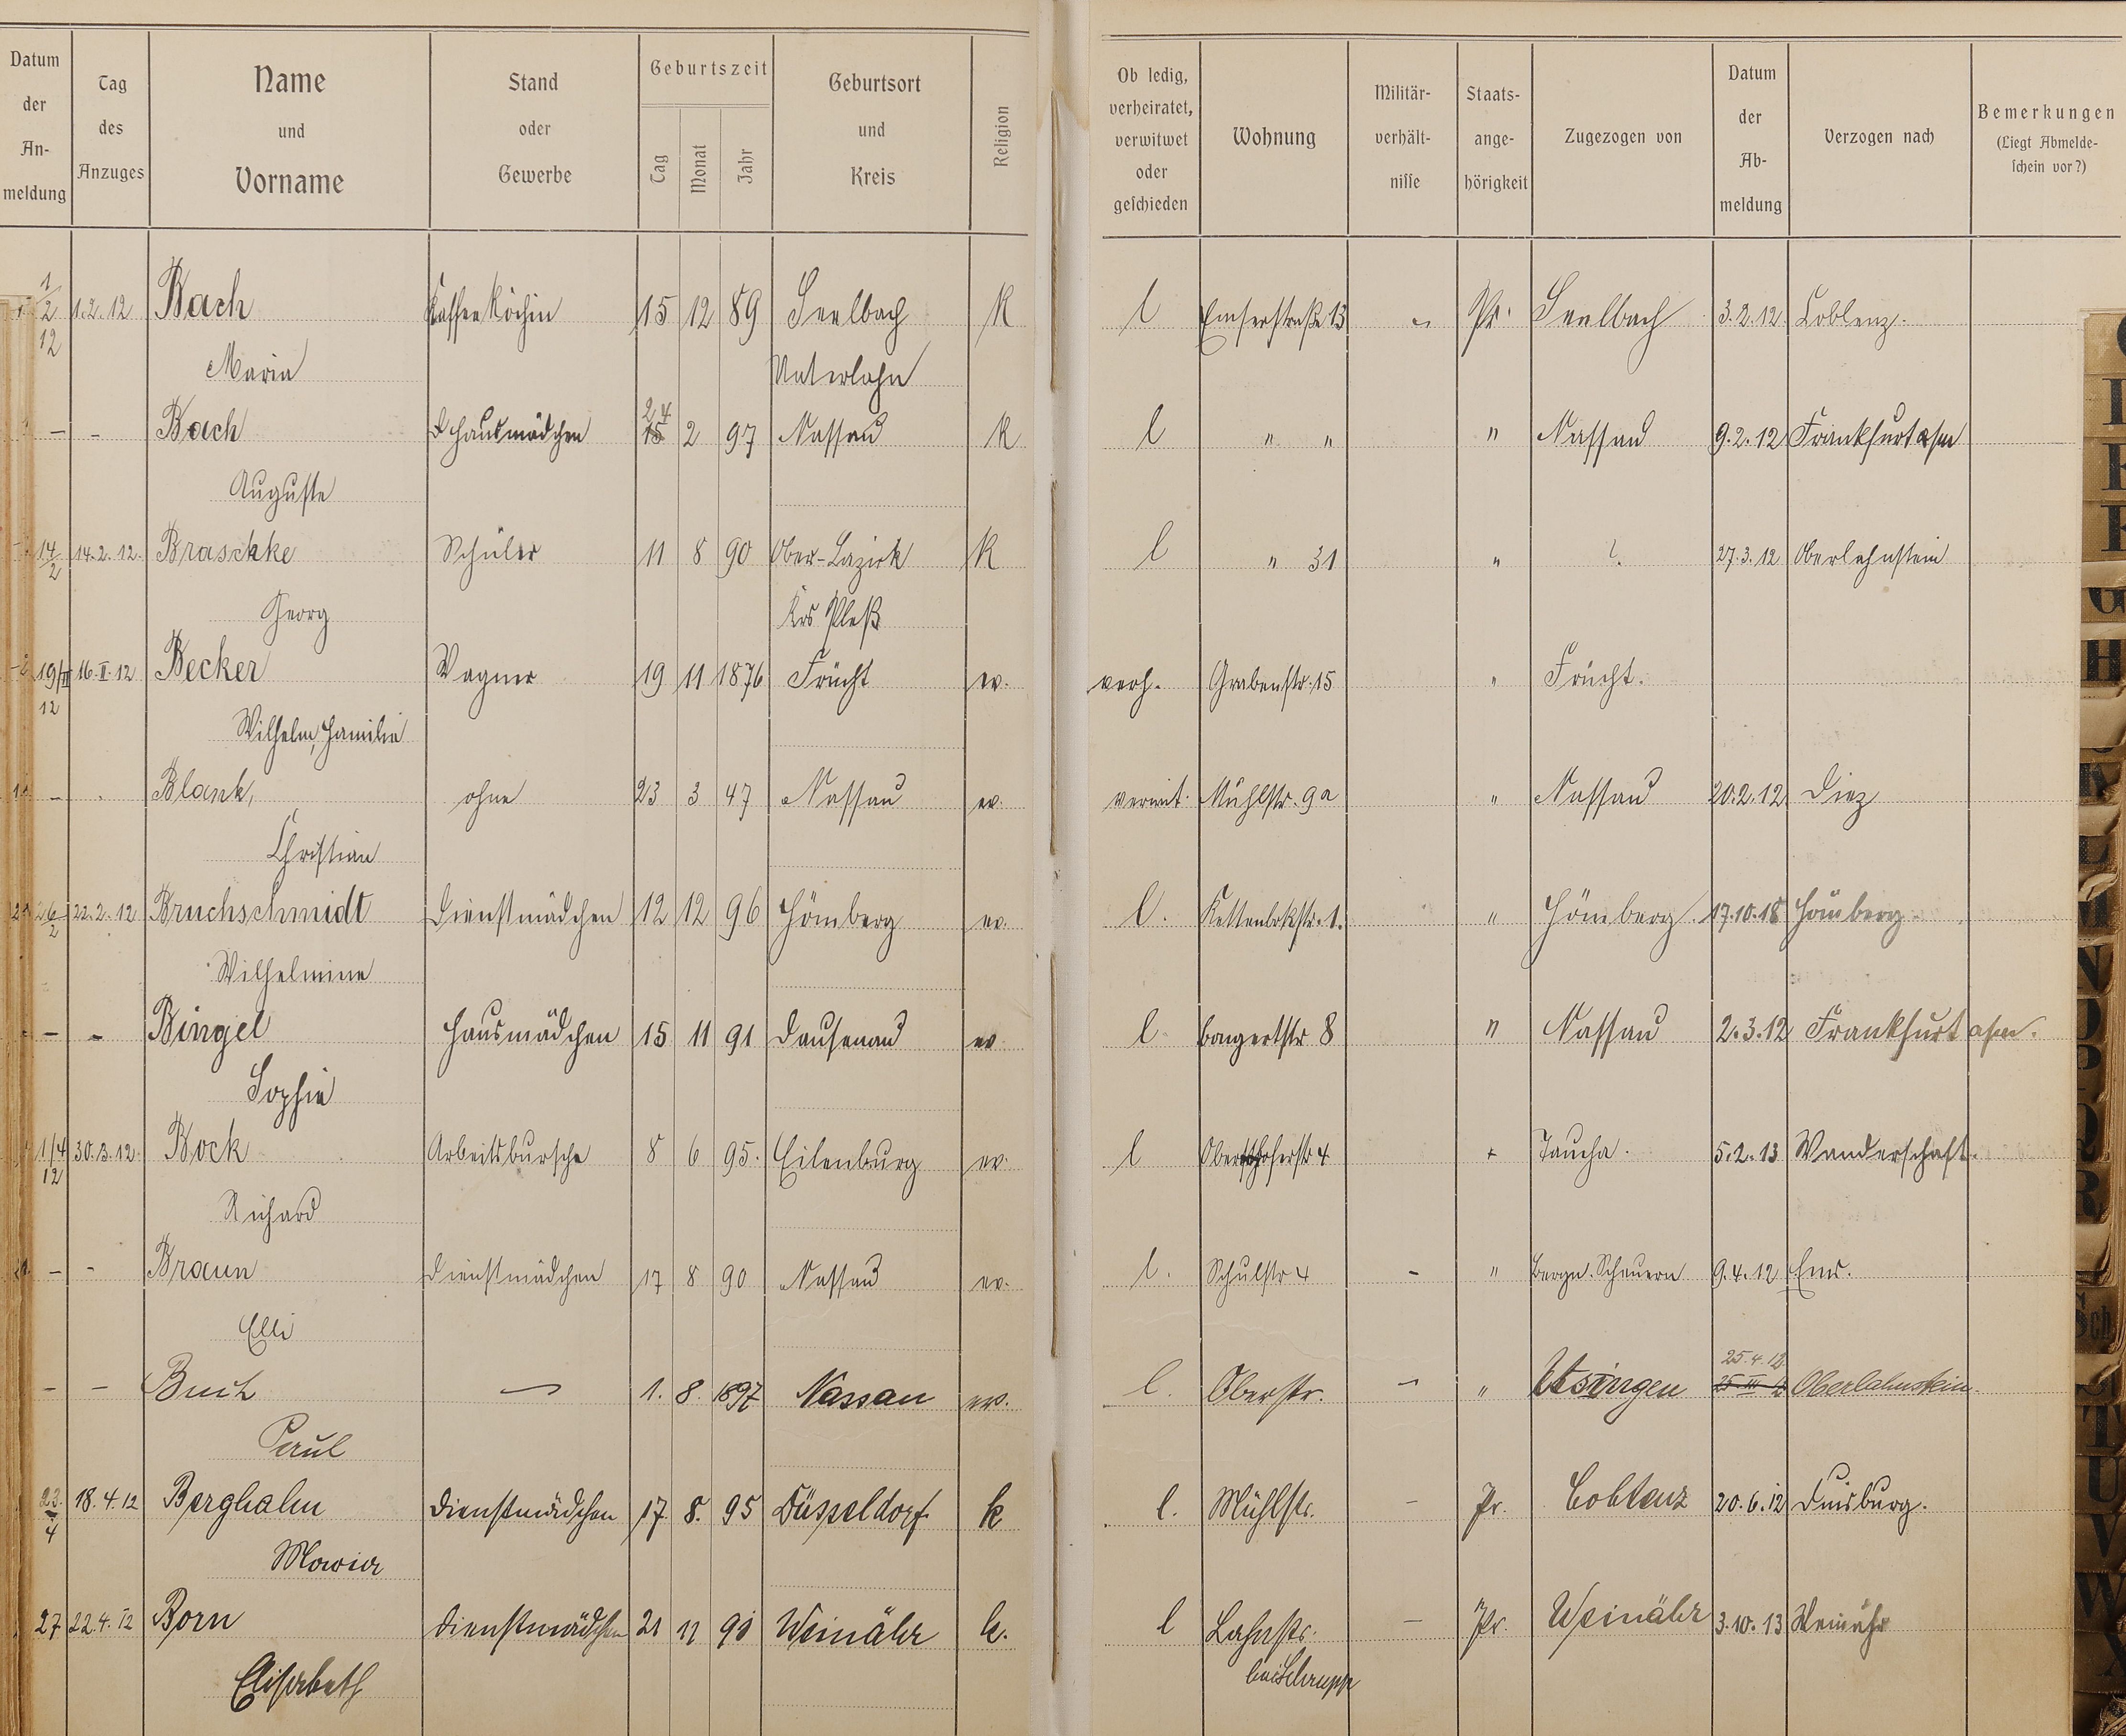 Datum der Anmeldung | Tag des Anzuges | Name und Vorname | Stand oder Gewerbe | Geburtszeit Tag Monat Jahr | Geburtsort und Kreis | Religion | Ob ledig, verheiratet, verwitwet oder geschieden | Wohnung | Militär-verhält-nisse | Staats-ange-hörigkeit | Zugezogen von | Datum der Ab-meldung | Verzogen nach | Bemerkungen (Liegt Abmelde-schein vor?)
1/2 12 1.2.12 Bach Kaffeeköchin 15 12 89 Seelbach K l Emserstraße 13 " Pr. Seelbach 3.2.12 Coblenz.
Maria Unterlahn
- - Bach Hausmädchen 24 2 97 Nassau K l " " " Nassau 9.2.12 Frankfurt a/m
Auguste
14/2 14.2.12. Braschke Schüler 11 8 90 Ober-Lazisk K l " 31 " ? 27.3.12 Oberlahnstein
Georg Krs Pleß
19/II 12 16.II.12 Becker Wagner 19 11 1876 Frücht ev. verh. Grabenstr. 15 " Frücht.
Wilhelm, Familie
- . Blank, ohne 23 3 47 Nassau ev. verwit. Mühlstr. 9a " Nassau 20.2.12 Diez
Christian
26/2 22.2.12 Bruchschmidt Dienstmädchen 12 12 96 Hömberg ev. l. Kettenbrkstr. 1. " Hömberg 17.10.18 Hömberg
Wilhelmine
- - Bingel Hausmädchen 15 11 91 Dausenau ev l. Bongertstr 8 " Nassau 2.3.12 Frankfurt a/m.
Sophie
1/4 12 30.3.12. Bock Arbeitsbursche 8 6 95. Eilenburg ev. l 4 Taucha. 5.2.13 Wanderschaft.
Richard
- - Braun Dienstmädchen 17 8 90 Nassau ev. l. Schulstr 4 - " Bergn. Scheuern 9.4.12 Ems.
Elli
- - Buch - 1. 8. 1897 Nassau ev. l. Oberstr. - " Usingen 25.4.12 Oberlahnstein.
Paul
23./4 18.4.12 Berghahn Dienstmädchen 17. 8. 95 Düsseldorf k l. Mühlstr. - Pr. Coblenz 20.6.12 Duisburg.
Maria
27 22.4.12 Born Dienstmädchen 21 11 90 Weinähr k. l Lahnstr. - Pr. Weinähr 3.10.13 Weinähr
Elisabeth bei
G
H
K
L
M
N
O
P
Q
R
Sch
T
U
V
W